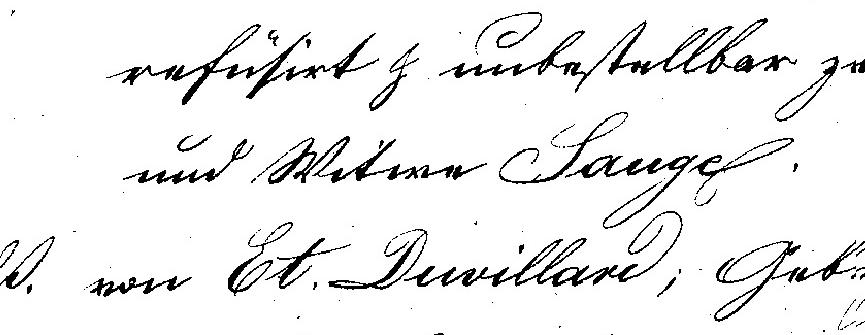 refüsirt & unbestellbar
und Witwe Sauge.
von Et. Duvillard, Geb